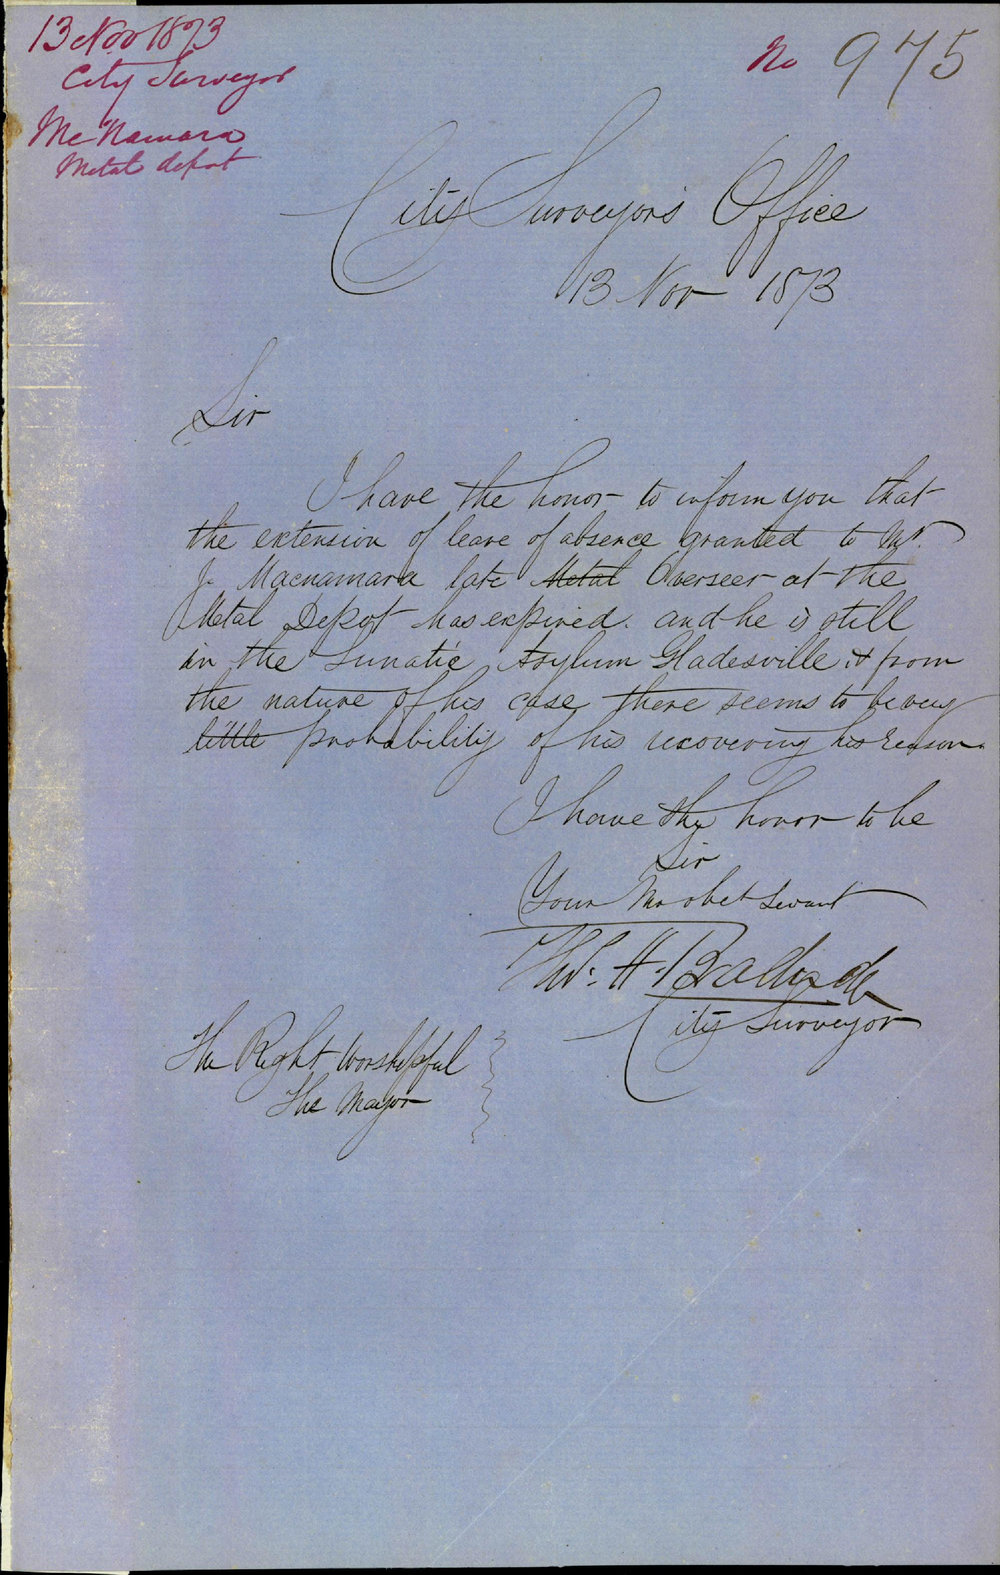 13 Nov 1873
City Surveyor
McNamara
Metal depot
No 975
City Surveyor's Office
13 Nov 1873
Sir
I have the honor to inform you that
the extension of leave of absence granted to Mr.
J. Macnamara late Metal Overseer at the
Metal Depot has expired. and he is still
in the Lunatic Asylum Gladesville & from
the nature of his case there seems to be very
little probability of his recovering his reason.
I have the honor to be
Sir
Your Mo obet Servant
Thos. H. Bradridge
City Surveyor
The Right Worshipful
The Mayor